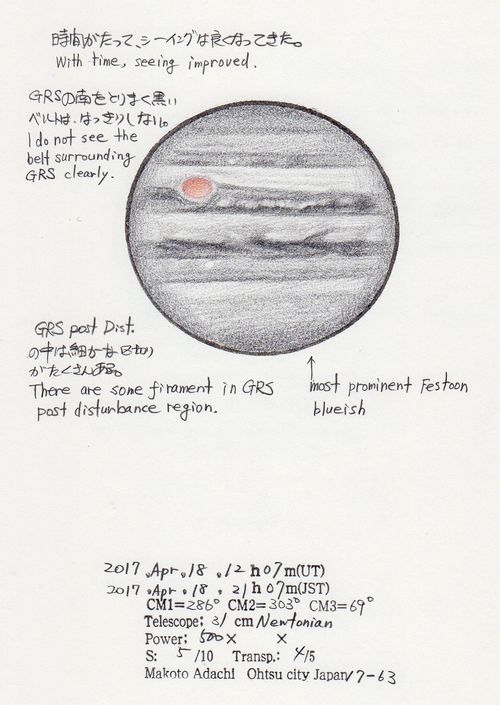 時間がたって、シーイングは良くなってきた。
With time, seeing improved.
GRSの南をとりまく黒い
ベルトは、はっきりしない。
I do not see the
belt surrounding
GRS clearly.
GRS post Dist.
の中は細かな区切り
がたくさんある。
There are some firament in GRS
post disturbance region.
most prominent Festoon
blueish
2017.Apr.18.12h07m(UT)
2017.Apr.18.21h07m(JST)
CM1=286° CM2=303° CM3=69°
Telescope; 31 cm Newtonian
Power; 500× ×
S: 5/10 Transp.: 4/5
Makoto Adachi Ohtsu city Japan 17-63